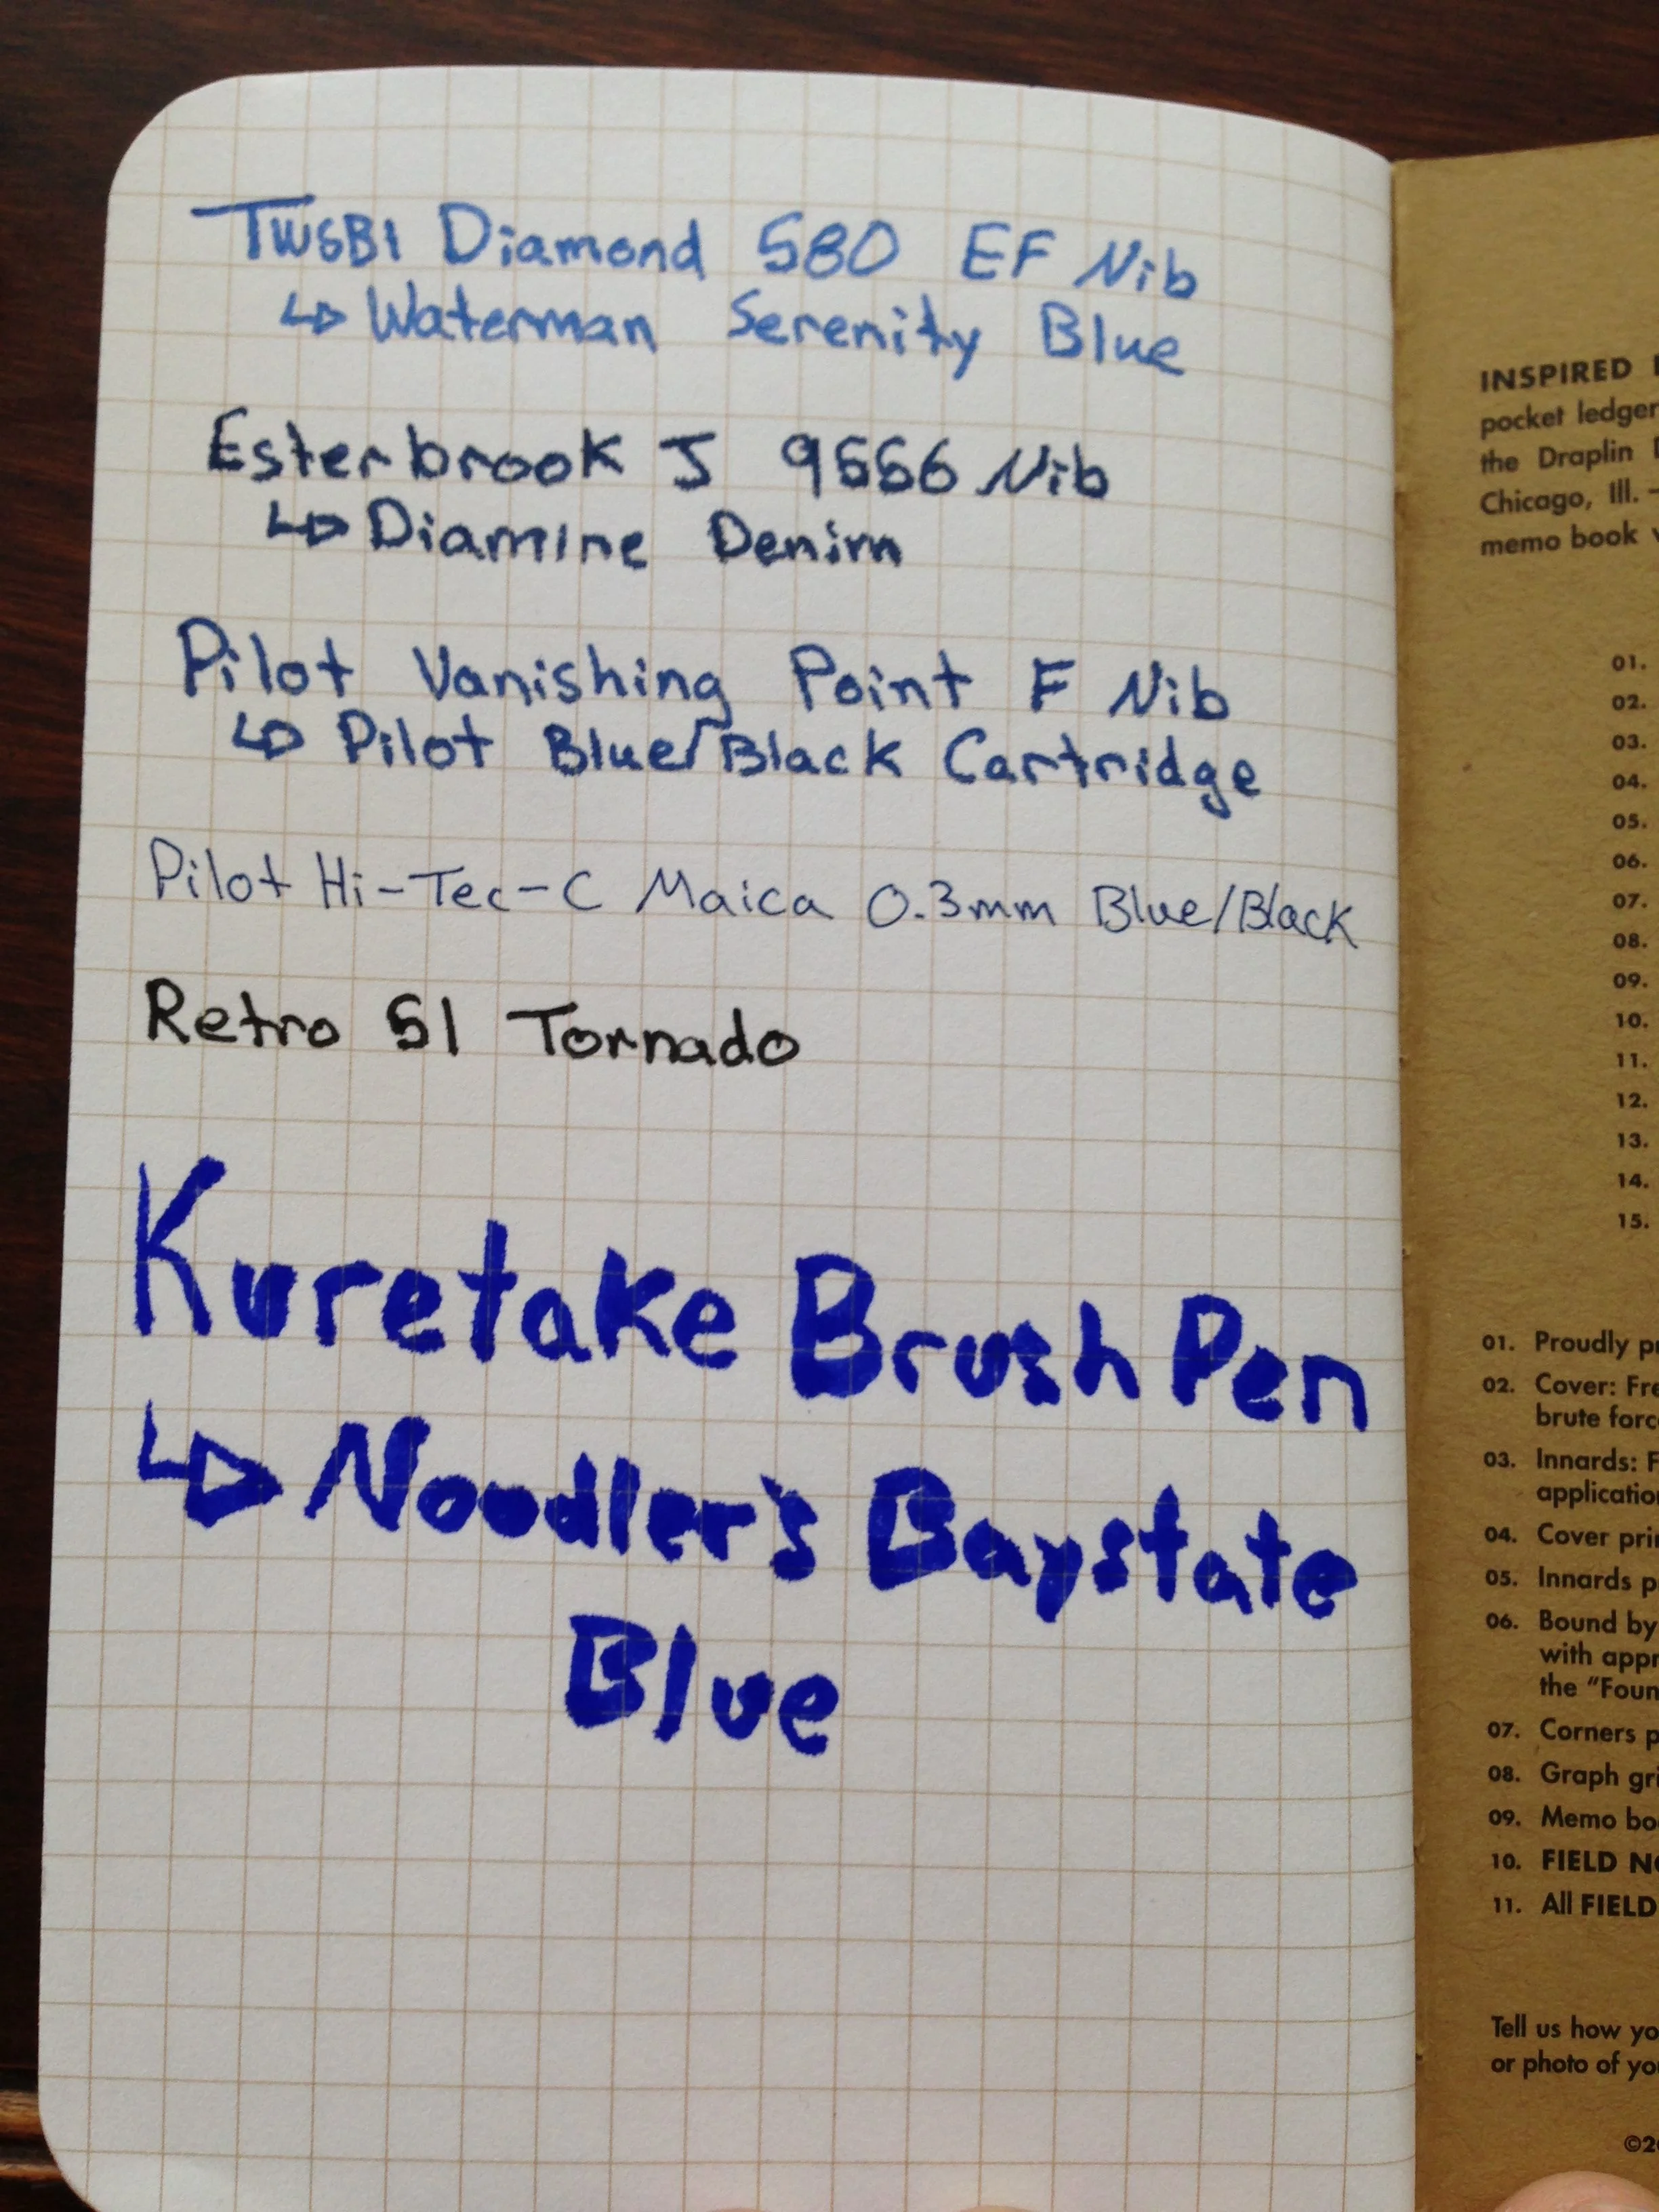 TWSBI Diamond 580 EF Nib
↳ Waterman Serenity Blue
Esterbrook J 9556 Nib
↳ Diamine Denim
Pilot Vanishing Point F Nib
↳ Pilot Blue/Black Cartridge
Pilot Hi-Tec-C Maica 0.3mm Blue/Black
Retro 51 Tornado
Kuretake Brush Pen
↳ Noodler's Baystate
Blue
INSPIRED
pocket ledger
the Draplin
Chicago, Ill. –
memo book
01.
02.
03.
04.
05.
06.
07.
08.
09.
10.
11.
12.
13.
14.
15.
01. Proudly
02. Cover:
brute
03. Innards:
04. Cover
05. Innards
06. Bound by
with
the
07. Corners
08. Graph
09. Memo
10. FIELD
11. All FIELD
Tell us how
or photo of